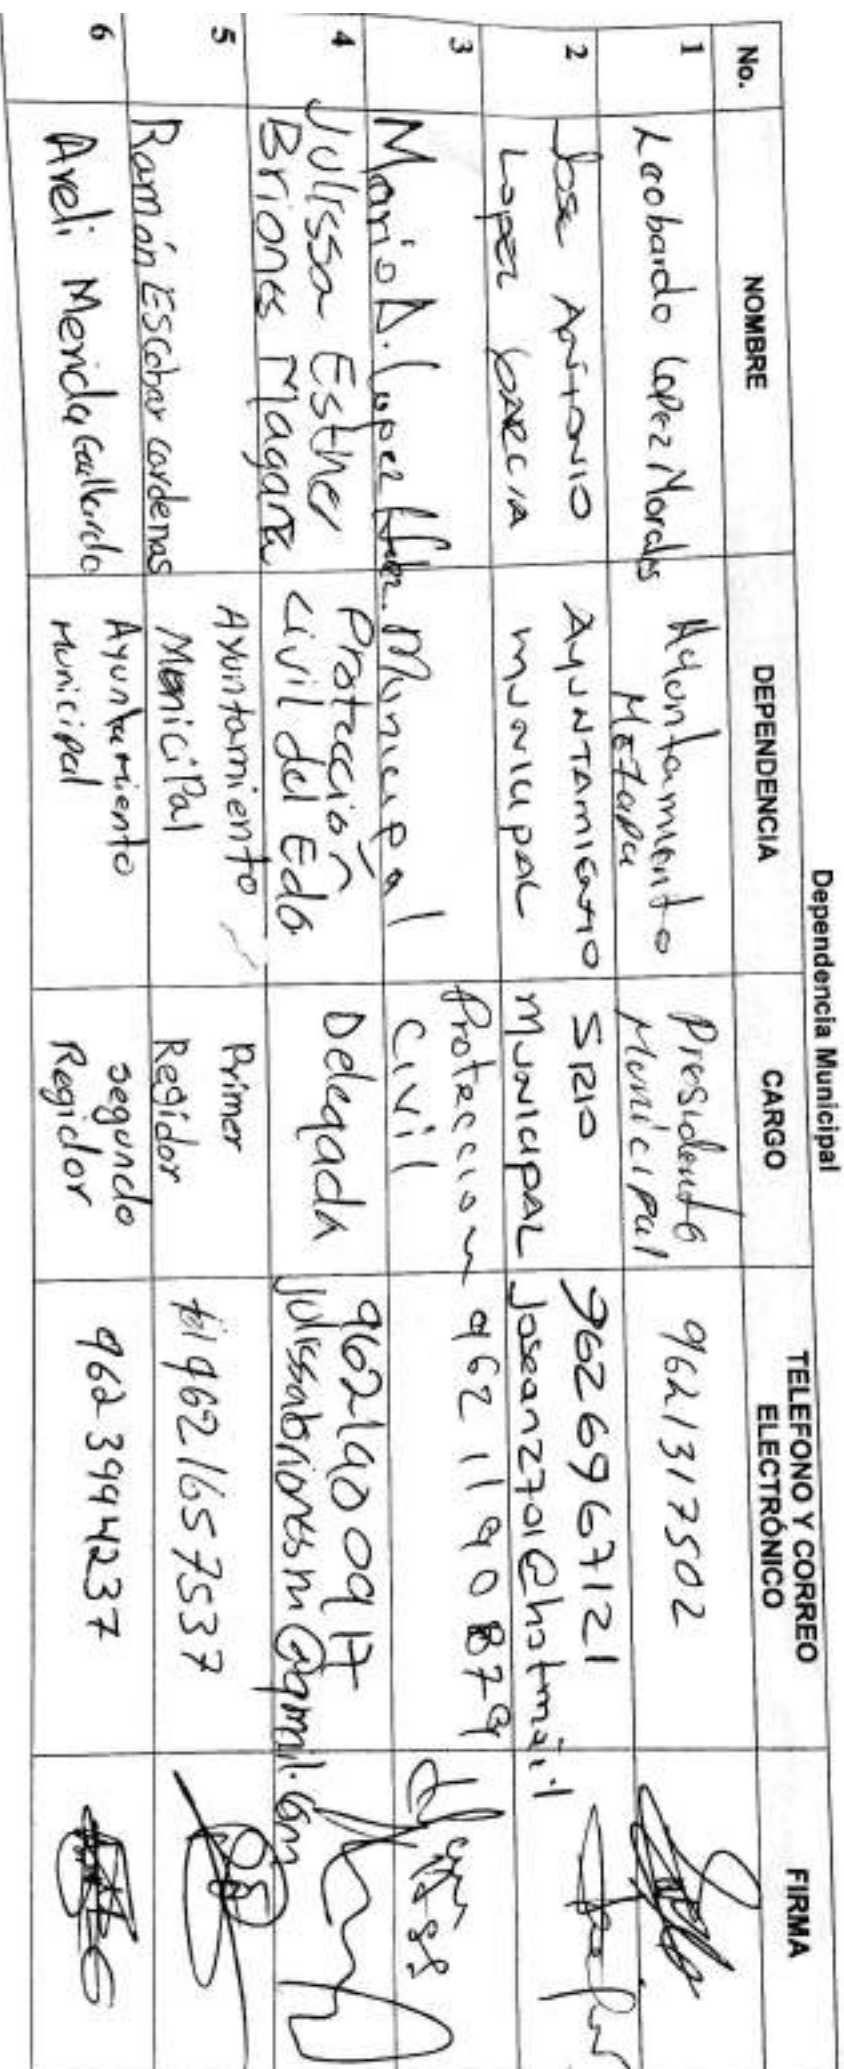 Dependencia Municipal
No. NOMBRE DEPENDENCIA CARGO TELEFONO Y CORREO ELECTRÓNICO FIRMA
1 Leobardo Lopez Morales Ayuntamiento Metapa Presidente Municipal 9621317502
2 Jose Antonio Lopez Garcia Ayuntamiento Municipal SRIO Municipal 9626967121 Josean2701@hotmail
3 Mario A. Lopez Hdez. Municipal Proteccion Civil 962 1190879
4 Julissa Esther Briones Magaña Protección Civil del Edo Delegada 9621900917 julissabrionesm@gmail.com
5 Ramón Escobar cardenas Ayuntamiento Municipal Primer Regidor tel 9621657537
6 Areli Merida Gallardo Ayuntamiento Municipal segundo Regidor 962 3994237